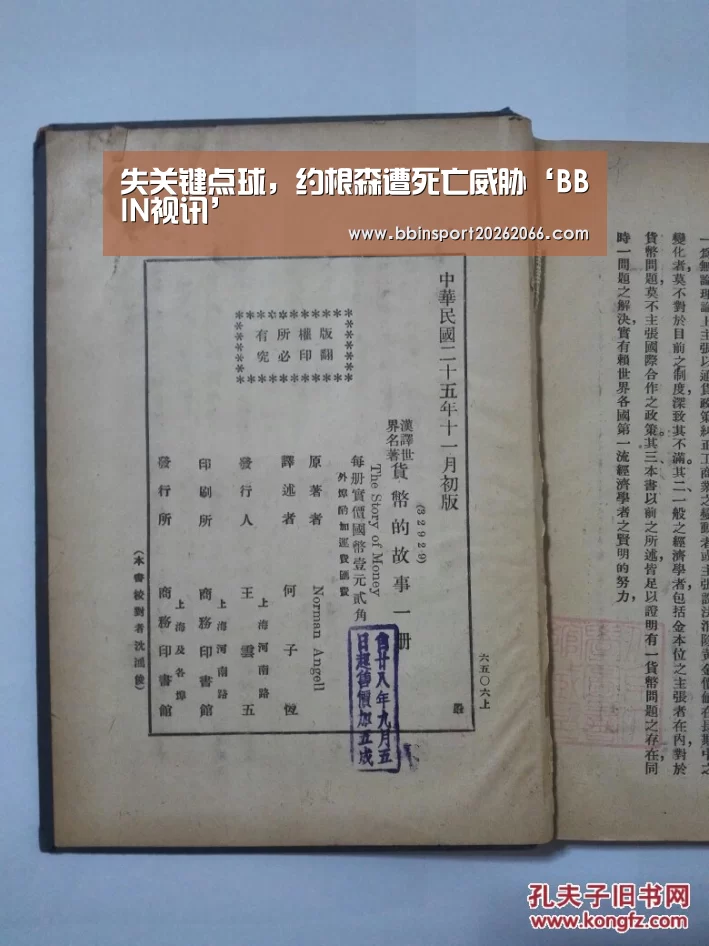 失关键点球，约根森遭死亡威胁‘BB
IN视讯’
www.bbinsport20262066.com
一為無論理論上主張以通貨政策糾正工商業之變動者或主張設法消除黃金價值在長期中之
變化者，莫不對於目前之制度，深致其不滿。其二，一般之經濟學者包括金本位之主張者在內，對於
貨幣問題，莫不主張國際合作之政策。其三，本書以前之所述，皆足以證明有一貨幣問題之存在，同
時一問題之解決，實有賴世界各國第一流經濟學者之賢明的努力，
六五〇六上
中華民國二十五年十一月初版
(32929)
漢譯世界名著
貨幣的故事一冊
The Story of Money
每册實價國幣壹元貳角
外埠酌加運費匯費
原著者 Norman Angell
譯述者 何子恆
發行人 王雲五
上海河南路
印刷所 商務印書館
上海河南路
發行所 商務印書館
上海及各埠
版權所有
翻印必究
(本書校對者沈鴻俊)
自廿八年九月五
日起售價加五成
孔夫子旧书网
www.kongfz.com